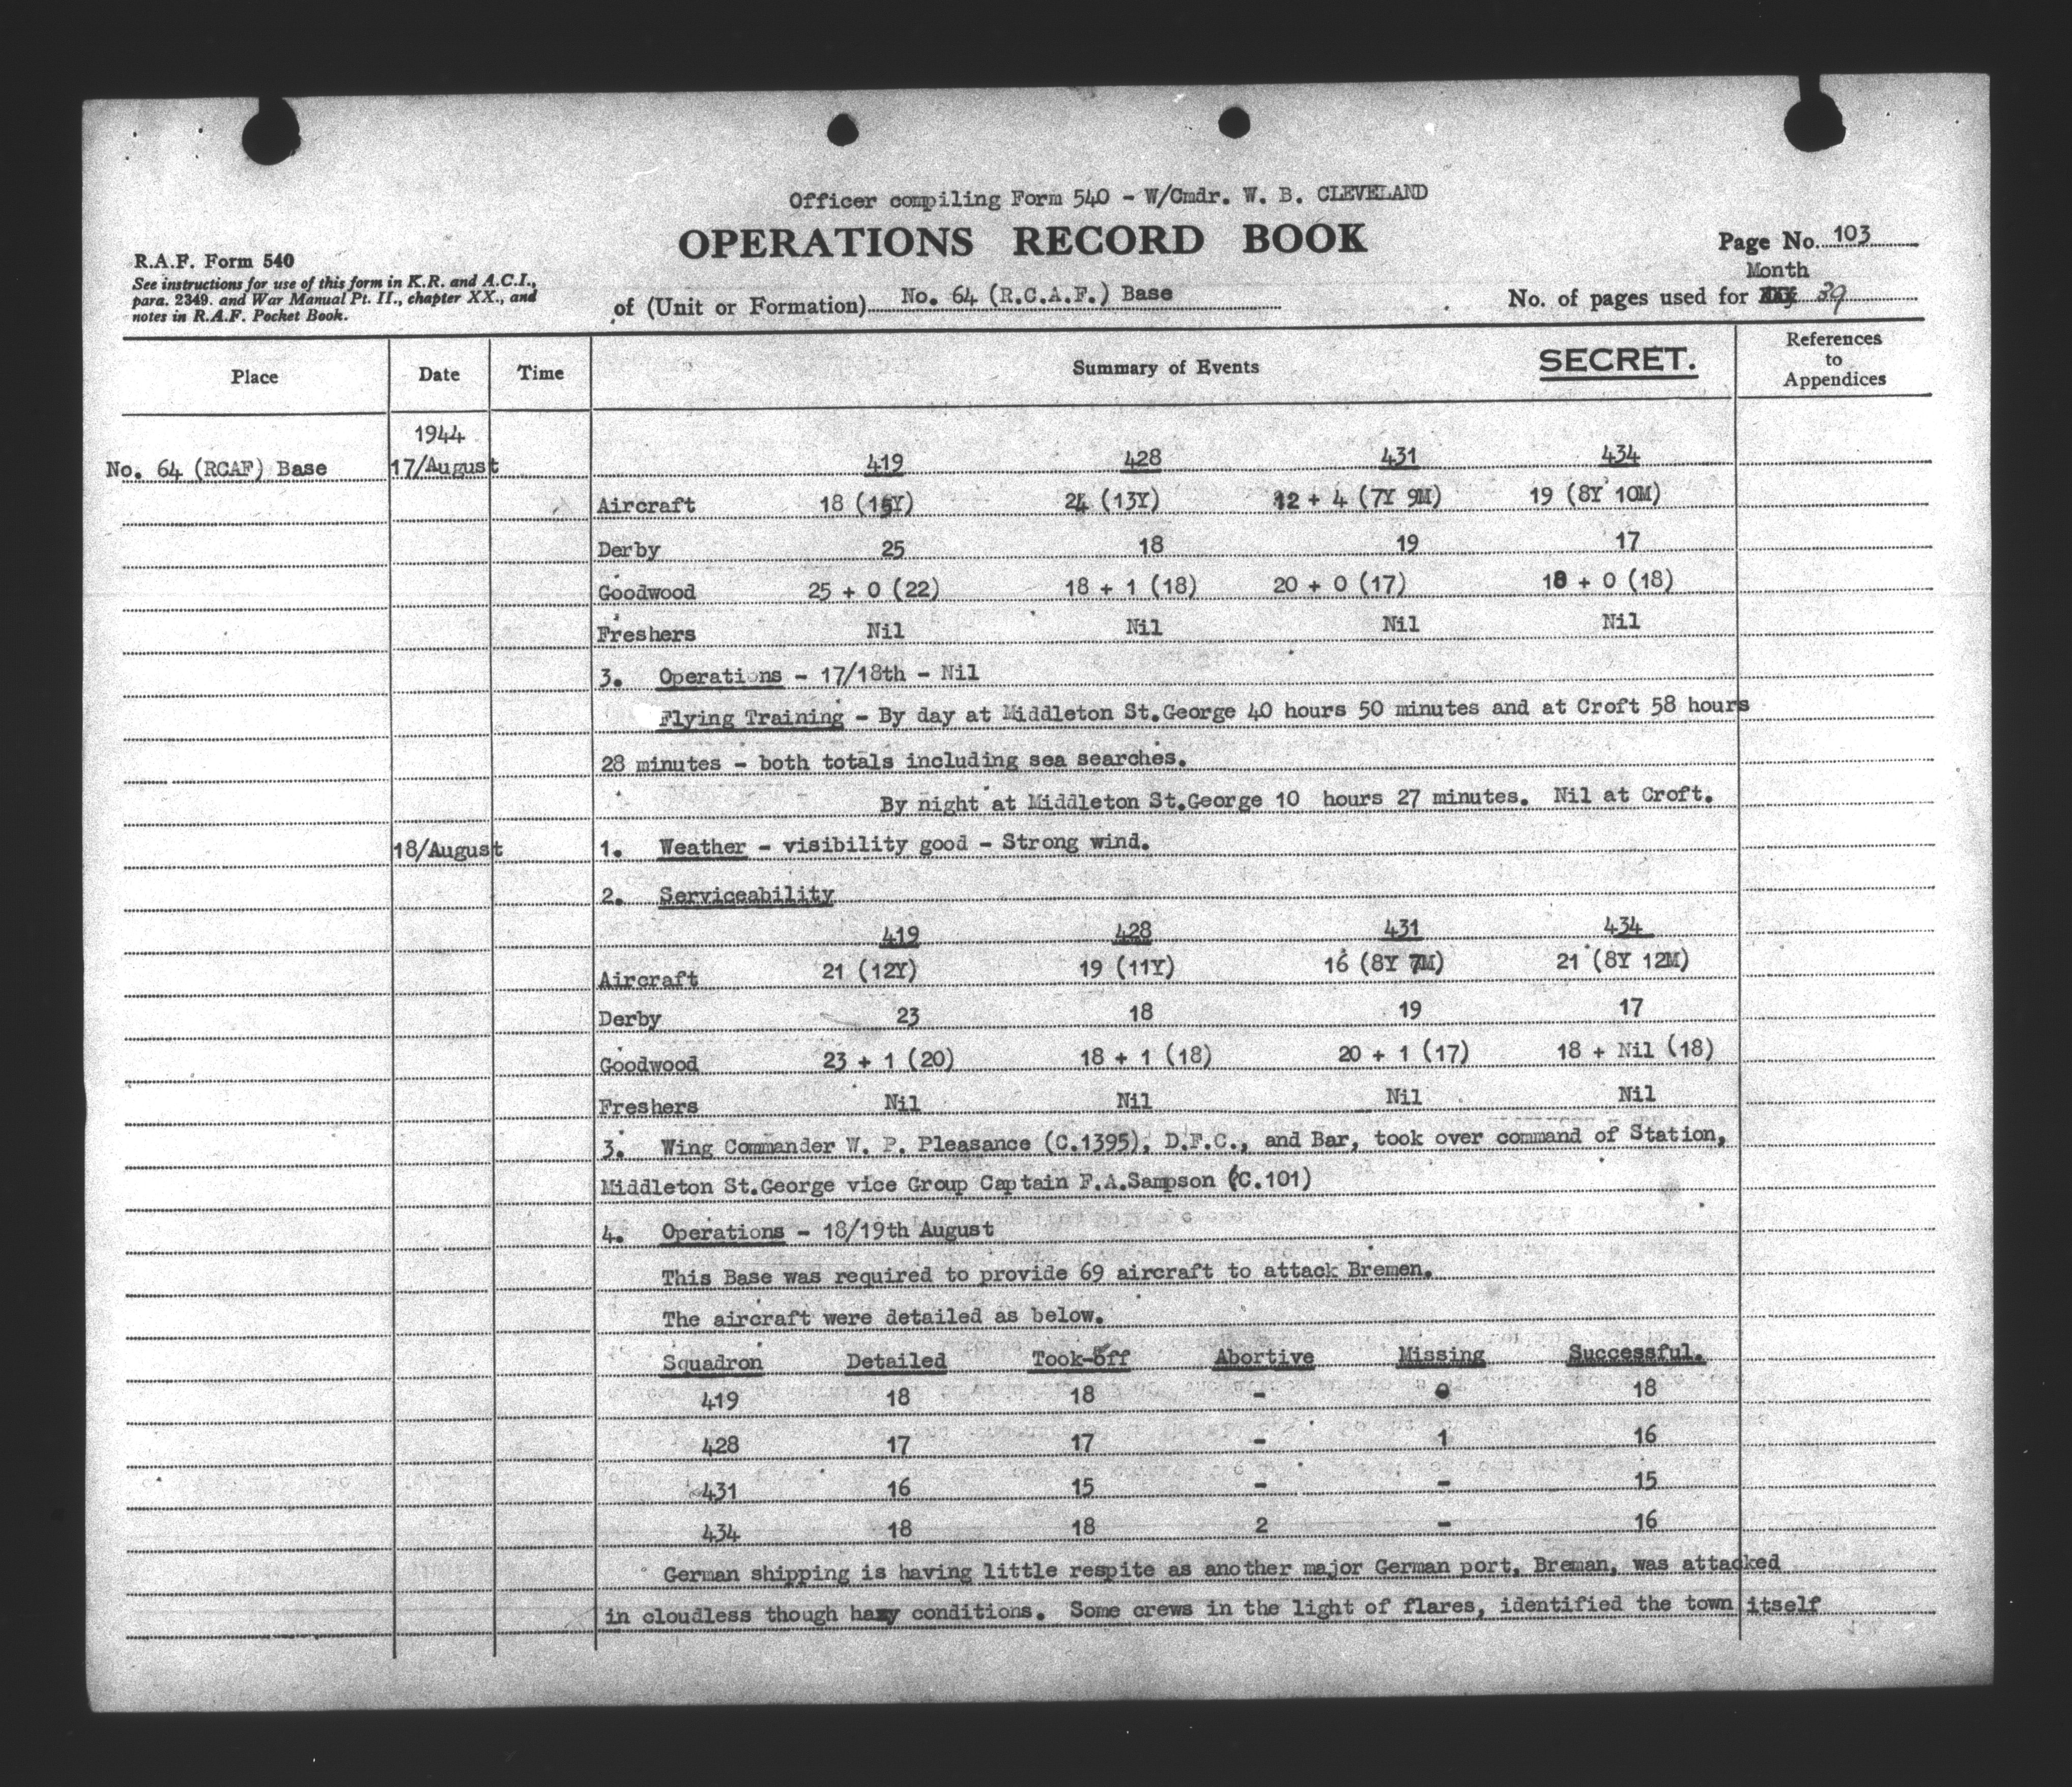 Officer compiling Form 540 - W/Cmdr. W. B. CLEVELAND
OPERATIONS RECORD BOOK
Page No. 103
R.A.F. Form 540
See instructions for use of this form in K.R. and A.C.I.,
para. 2349. and War Manual Pt. II., chapter XX., and
notes in R.A.F. Pocket Book.
of (Unit or Formation) No. 64 (R.C.A.F.) Base
Month
No. of pages used for 39
Place Date Time Summary of Events SECRET. References to Appendices
1944
No. 64 (RCAF) Base 17/August 419 428 431 434
Aircraft 18 (15Y) 24 (13Y) 12 + 4 (7Y 9M) 19 (8Y 10M)
Derby 25 18 19 17
Goodwood 25 + 0 (22) 18 + 1 (18) 20 + 0 (17) 18 + 0 (18)
Freshers Nil Nil Nil Nil
3. Operations - 17/18th - Nil
Flying Training - By day at Middleton St.George 40 hours 50 minutes and at Croft 58 hours
28 minutes - both totals including sea searches.
By night at Middleton St.George 10 hours 27 minutes. Nil at Croft.
18/August 1. Weather - visibility good - Strong wind.
2. Serviceability
419 428 431 434
Aircraft 21 (12Y) 19 (11Y) 16 (8Y 7M) 21 (8Y 12M)
Derby 23 18 19 17
Goodwood 23 + 1 (20) 18 + 1 (18) 20 + 1 (17) 18 + Nil (18)
Freshers Nil Nil Nil Nil
3. Wing Commander W. P. Pleasance (C.1395), D.F.C., and Bar, took over command of Station,
Middleton St.George vice Group Captain F.A.Sampson (C.101)
4. Operations - 18/19th August
This Base was required to provide 69 aircraft to attack Bremen.
The aircraft were detailed as below.
Squadron Detailed Took-off Abortive Missing Successful.
419 18 18 - 0 18
428 17 17 - 1 16
431 16 15 - - 15
434 18 18 2 - 16
German shipping is having little respite as another major German port, Breman, was attacked
in cloudless though hazy conditions. Some crews in the light of flares, identified the town itself